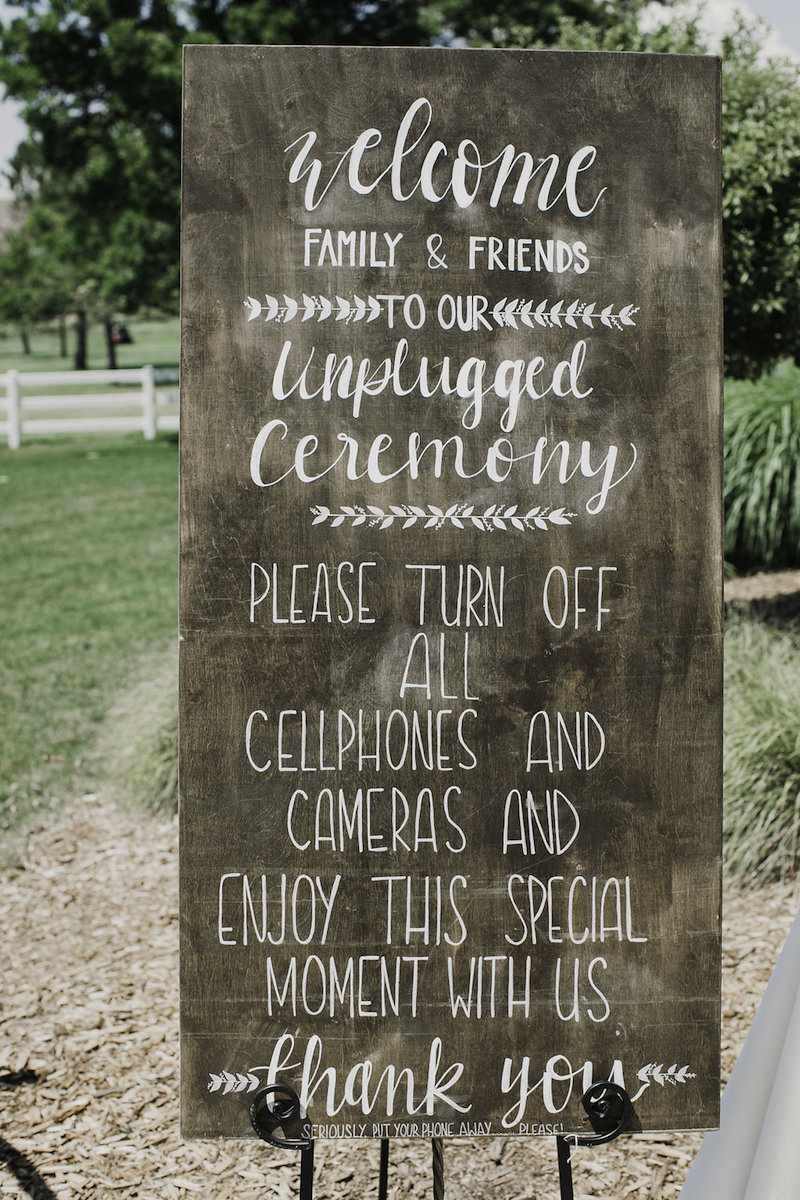 Welcome
FAMILY & FRIENDS
TO OUR
Unplugged
Ceremony
PLEASE TURN OFF
ALL
CELLPHONES AND
CAMERAS AND
ENJOY THIS SPECIAL
MOMENT WITH US
thank you
SERIOUSLY, PUT YOUR PHONE AWAY..... PLEASE!